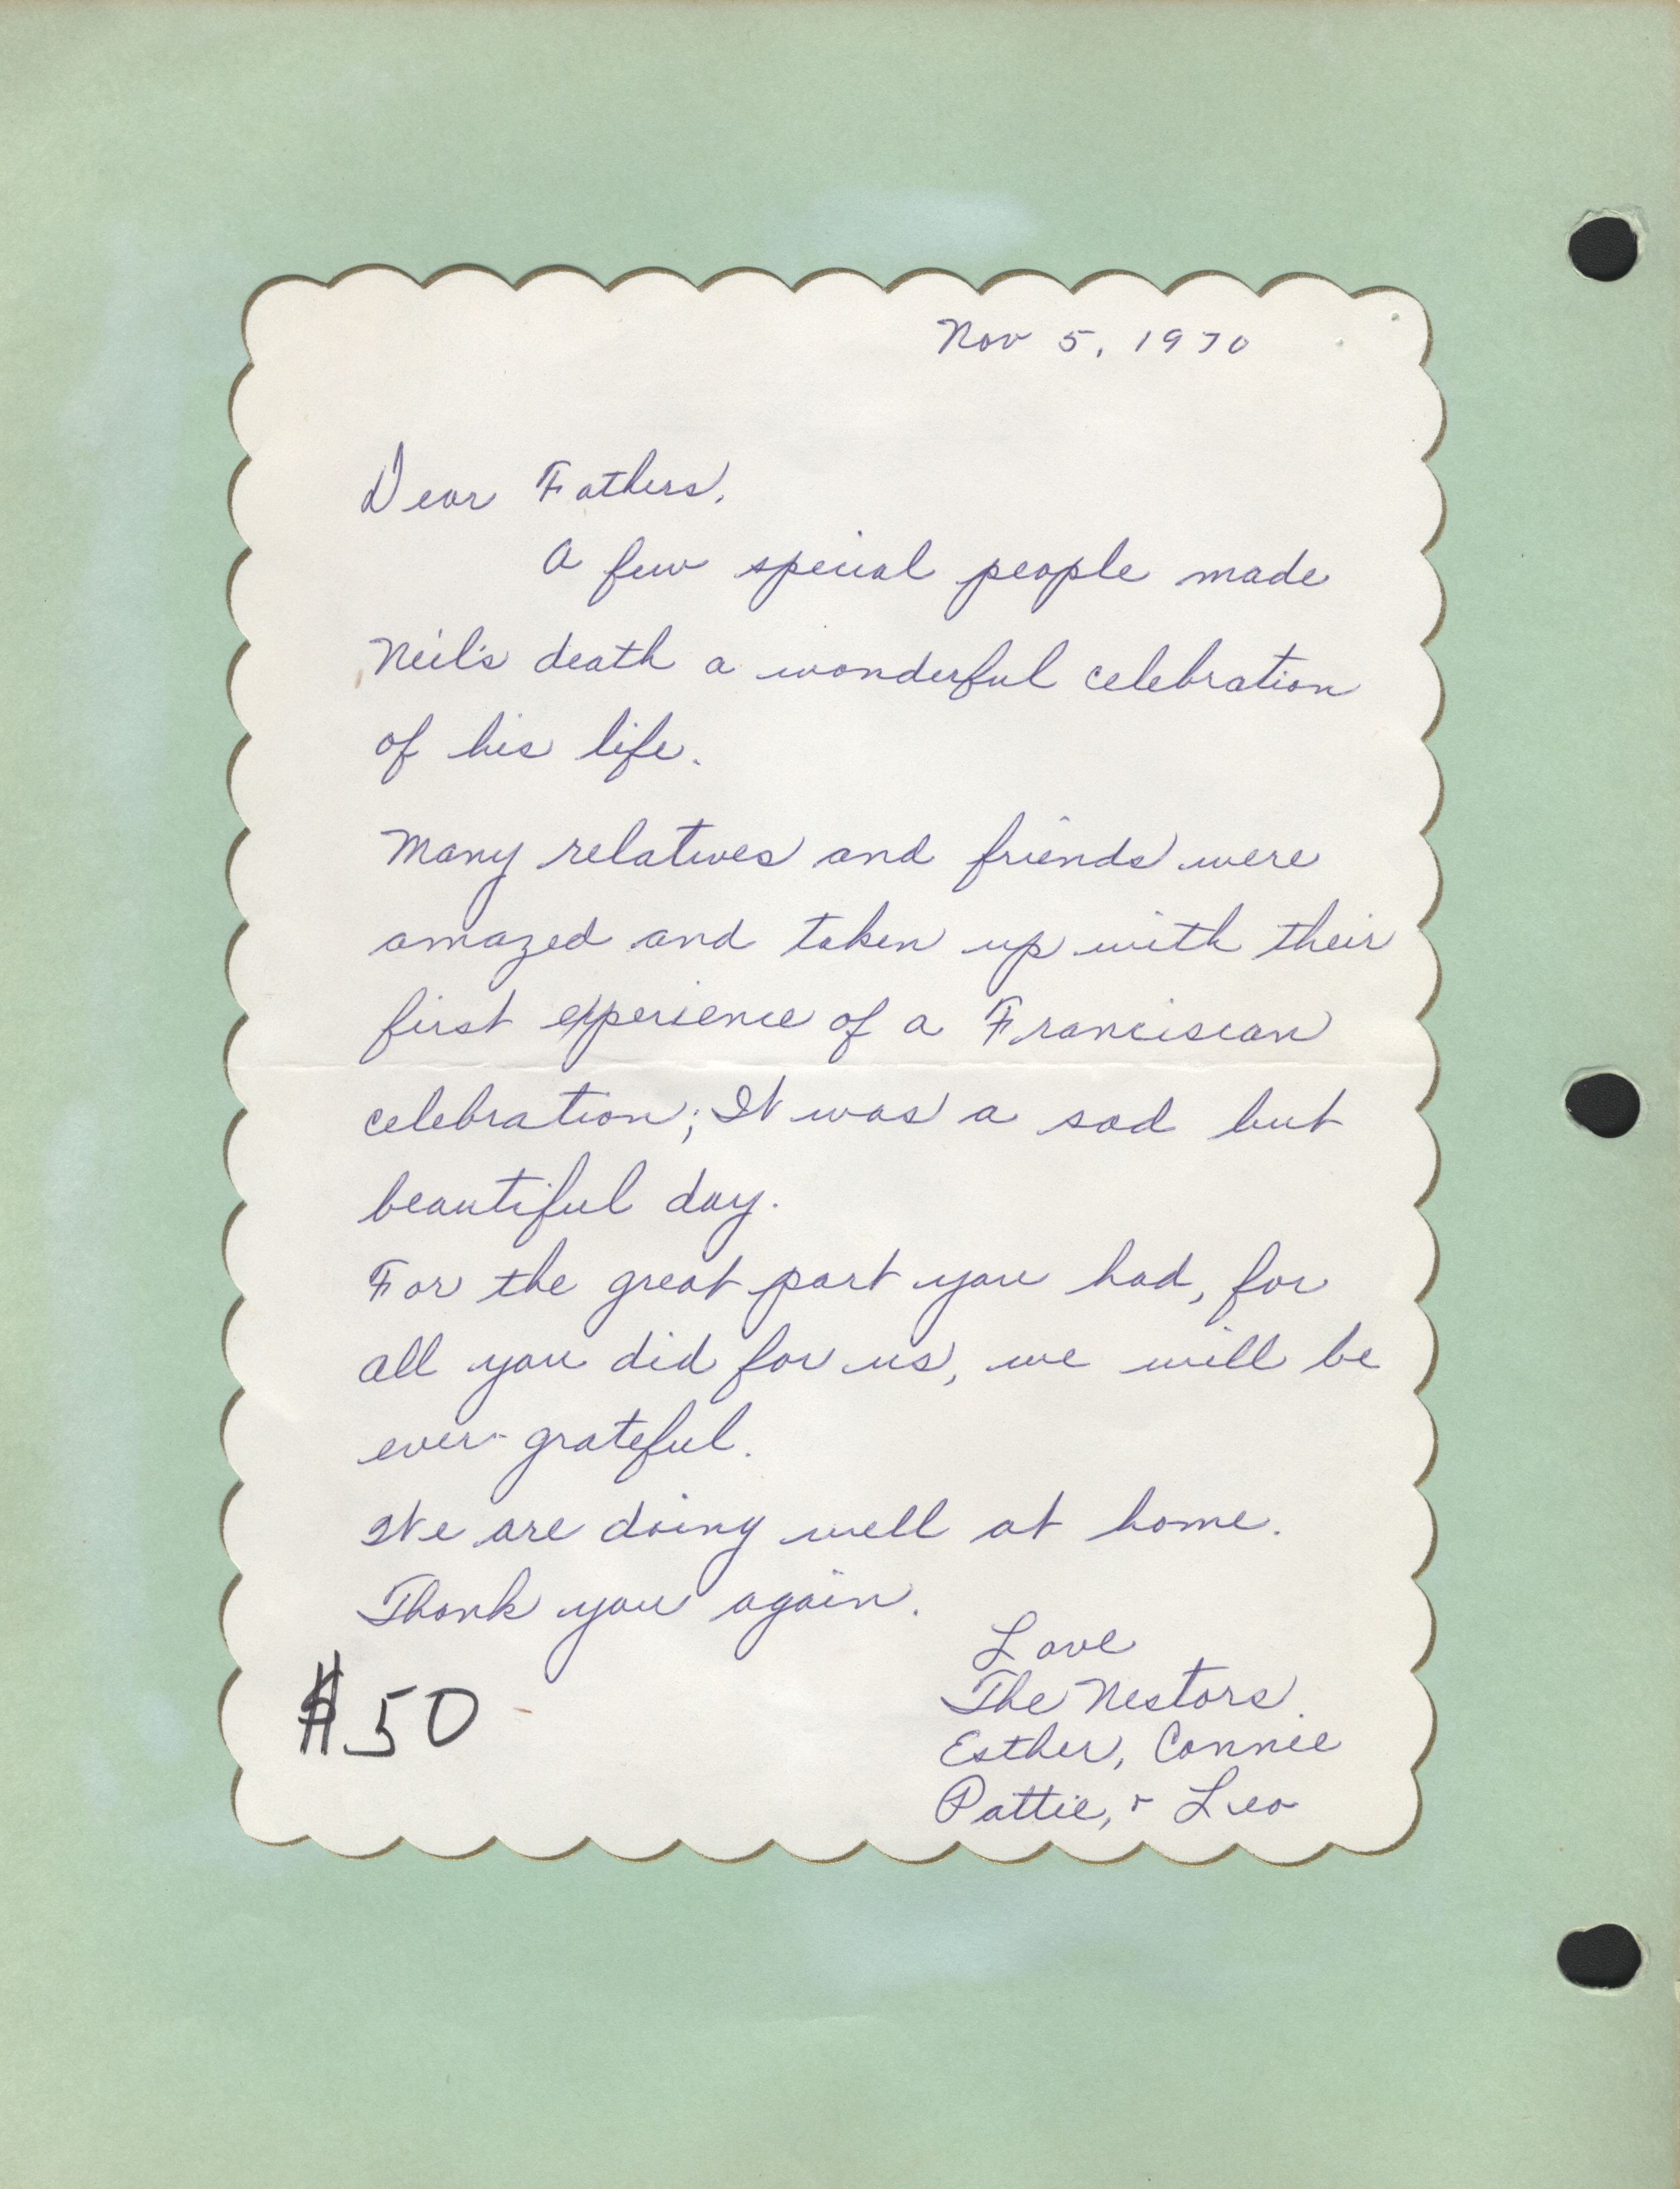 Nov 5, 1970
Dear Fathers,
A few special people made
Neil's death a wonderful celebration
of his life.
Many relatives and friends were
amazed and taken up with their
first experience of a Franciscan
celebration; It was a sad but
beautiful day.
For the great part you had, for
all you did for us, we will be
ever-grateful.
We are doing well at home.
Thank you again.
Love
The Nestors.
Esther, Connie
Pattie, & Leo
$50